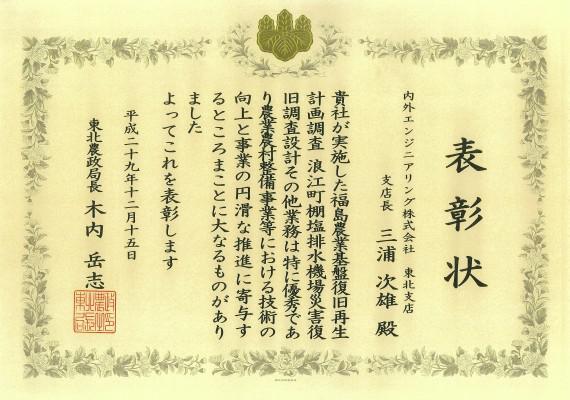 表彰状
内外エンジニアリング株式会社 東北支店
支店長 三浦 次雄 殿
貴社が実施した福島農業基盤復旧再生
計画調査 浪江町棚塩排水機場災害復
旧調査設計その他業務は特に優秀であ
り農業農村整備事業等における技術の
向上と事業の円滑な推進に寄与す
るところまことに大なるものがあり
ました
よってこれを表彰します
平成二十九年十二月十五日
東北農政局長 木内 岳志